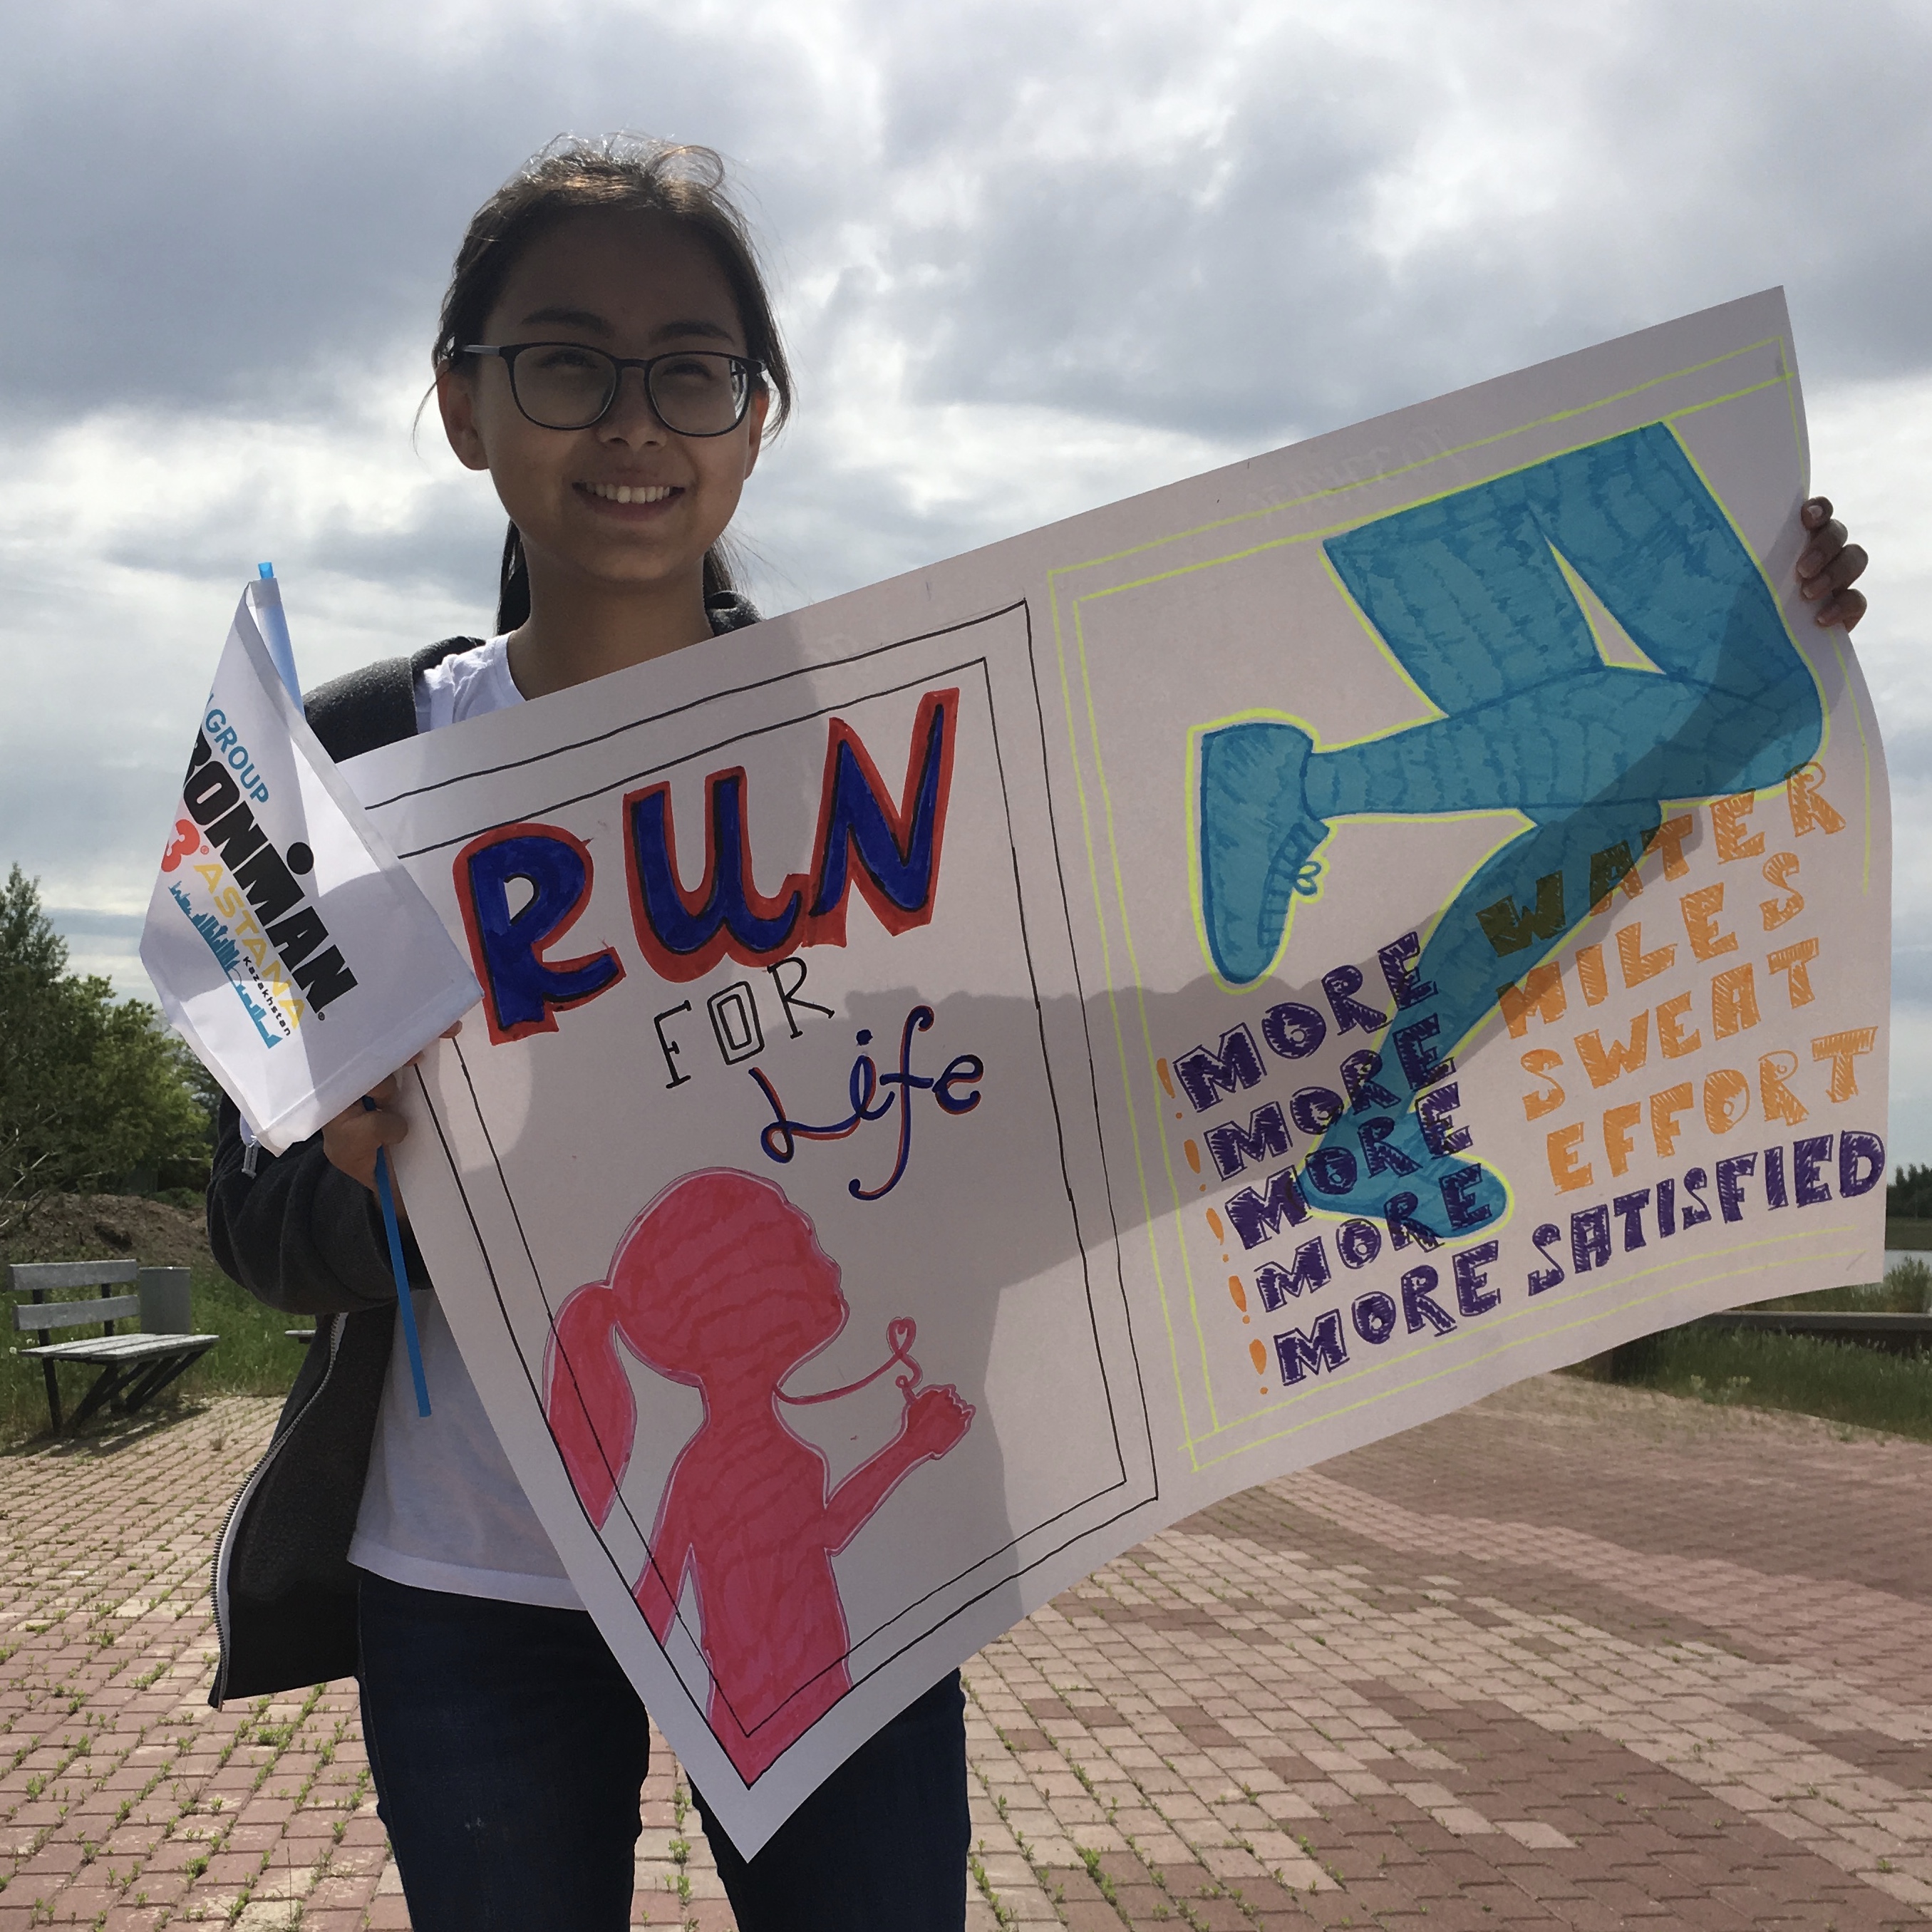 GROUP
IRONMAN
ASTANA
Kazakhstan
RUN
FOR
Life
! MORE WATER
! MORE MILES
! MORE SWEAT
! MORE EFFORT
! MORE SATISFIED